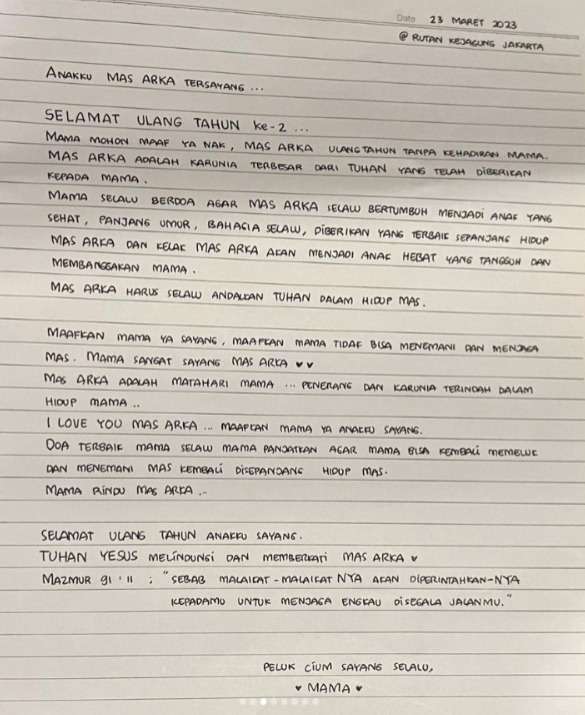 Date 23 MARET 2023
@ RUTAN KEJAGUNG JAKARTA
ANAKKU MAS ARKA TERSAYANG ...
SELAMAT ULANG TAHUN ke-2 ...
MAMA MOHON MAAF YA NAK, MAS ARKA ULANGTAHUN TANPA KEHADIRAN MAMA.
MAS ARKA ADALAH KARUNIA TERBESAR DARI TUHAN YANG TELAH DIBERIKAN
KEPADA MAMA.
MAMA SELALU BERDOA AGAR MAS ARKA SELALU BERTUMBUH MENJADI ANAK YANG
SEHAT, PANJANG UMUR, BAHAGIA SELALU, DIBERIKAN YANG TERBAIK SEPANJANG HIDUP
MAS ARKA DAN KELAK MAS ARKA AKAN MENJADI ANAK HEBAT YANG TANGGUH DAN
MEMBANGGAKAN MAMA.
MAS ARKA HARUS SELALU ANDALKAN TUHAN DALAM HIDUP MAS.
MAAFKAN MAMA YA SAYANG, MAAFKAN MAMA TIDAK BISA MENEMANI DAN MENJAGA
MAS. MAMA SANGAT SAYANG MAS ARKA ♥♥
MAS ARKA ADALAH MATAHARI MAMA ... PENERANG DAN KARUNIA TERINDAH DALAM
HIDUP MAMA..
I LOVE YOU MAS ARKA ... MAAFKAN MAMA YA ANAKKU SAYANG.
DOA TERBAIK MAMA SELALU MAMA PANJATKAN AGAR MAMA BISA KEMBALI MEMELUK
DAN MENEMANI MAS KEMBALI DISEPANJANG HIDUP MAS.
MAMA RINDU MAS ARKA ...
SELAMAT ULANG TAHUN ANAKKU SAYANG.
TUHAN YESUS MELINDUNGI DAN MEMBERKATI MAS ARKA ♥
MAZMUR 91:11 : "SEBAB MALAIKAT-MALAIKAT NYA AKAN DIPERINTAHKAN-NYA
KEPADAMU UNTUK MENJAGA ENGKAU DISEGALA JALANMU."
PELUK CIUM SAYANG SELALU,
♥ MAMA ♥